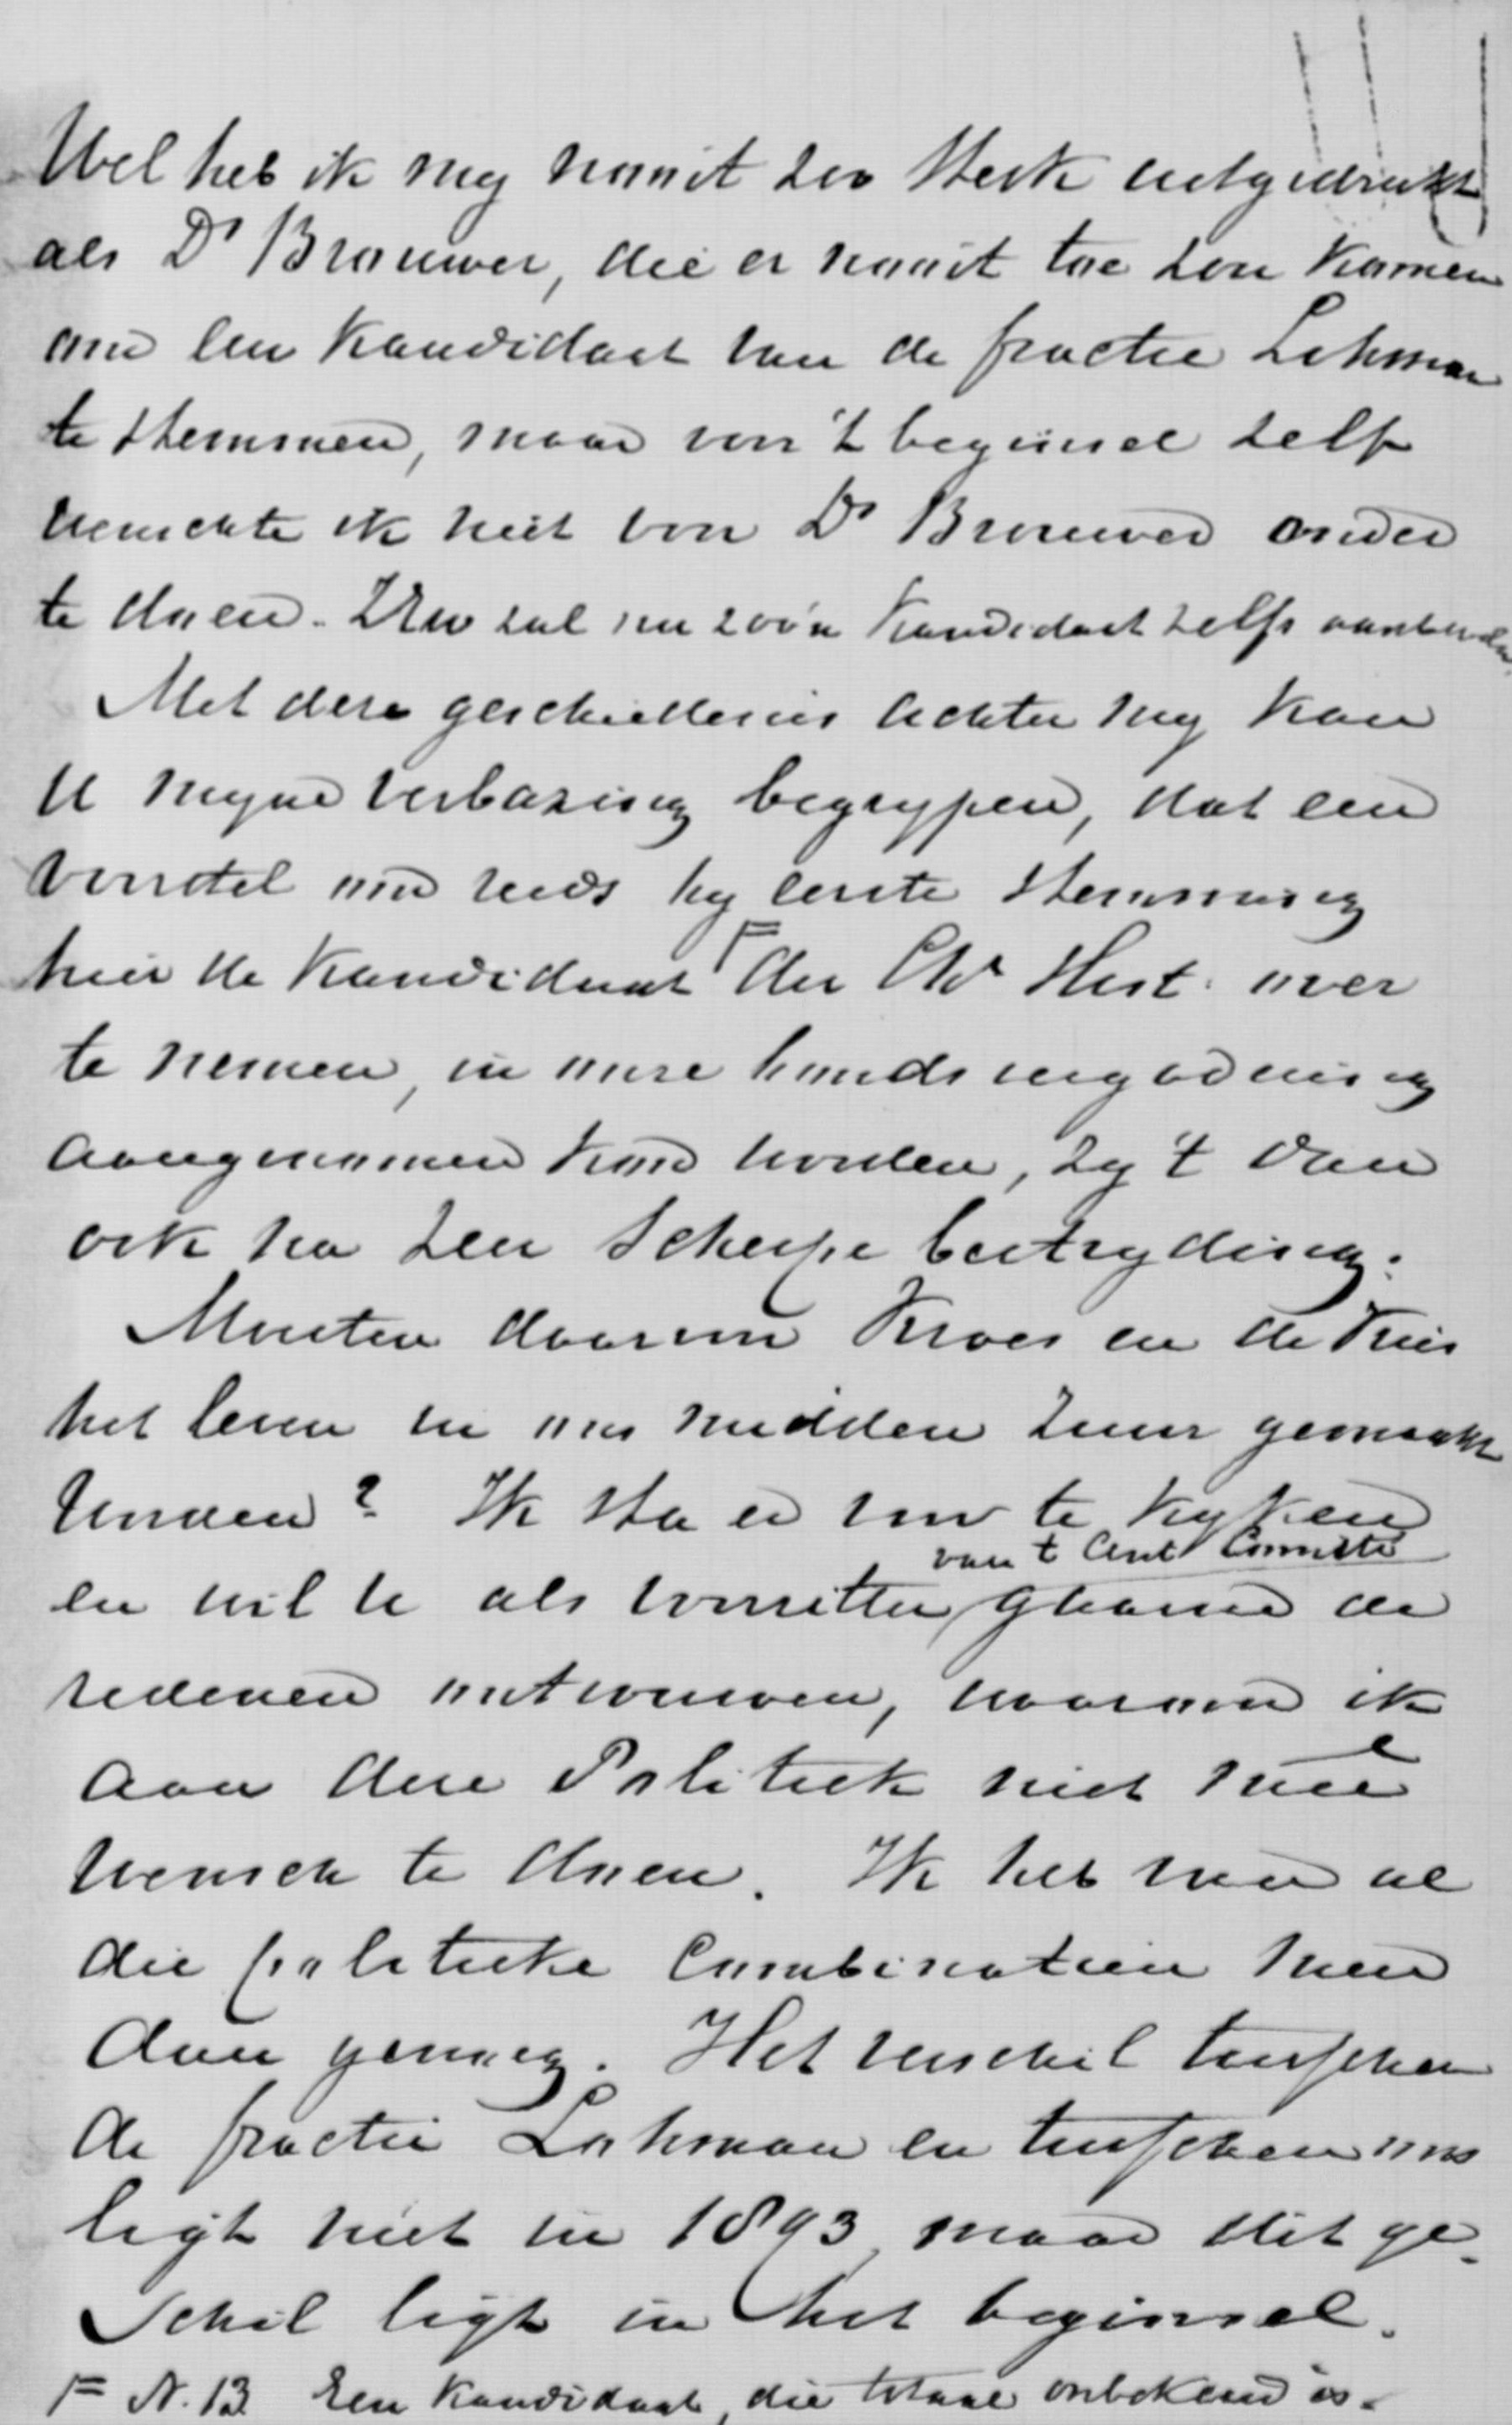 Wel heb ik mij nooit zoo sterk uitgedrukt
als Dr Brouwer, die er nooit toe zou komen
om een Kandidaat van de fractie Lohman
te stemmen, maar voor 't beginsel zelf
wenschte ik niet voor Dr Brouwer onder
te doen. Men zal nu zoo'n Kandidaat zelfs aanbevelen.
Met deze geschiedenis achter mij kan
U mijne verbazing begrijpen, dat een
voorstel om reeds bij eerste stemming
hier de Kandidaat F der Chr Hist. over
te nemen, in onze bondsvergadering
aangenomen kon worden, zij 't dan
ook na zeer scherpe bestrijding.
Moeten daarom Kroes en de Kuis
het leven in ons midden zuur gemaakt
worden? Ik sta er van te kijken
van t Cent Comité
en wil U als voorzitter gaarne de
redenen ontvouwen, waarom ik
aan deze Politiek niet meê
wensch te doen. Ik heb van al
die politieke Combinatiën meer
dan genoeg. Het verschil tusschen
de fractie Lohman en tusschen ons
ligt niet in 1893, maar dit ge-
schil ligt in het beginsel.
F N.B. Een Kandidaat, die totaal onbekend is.